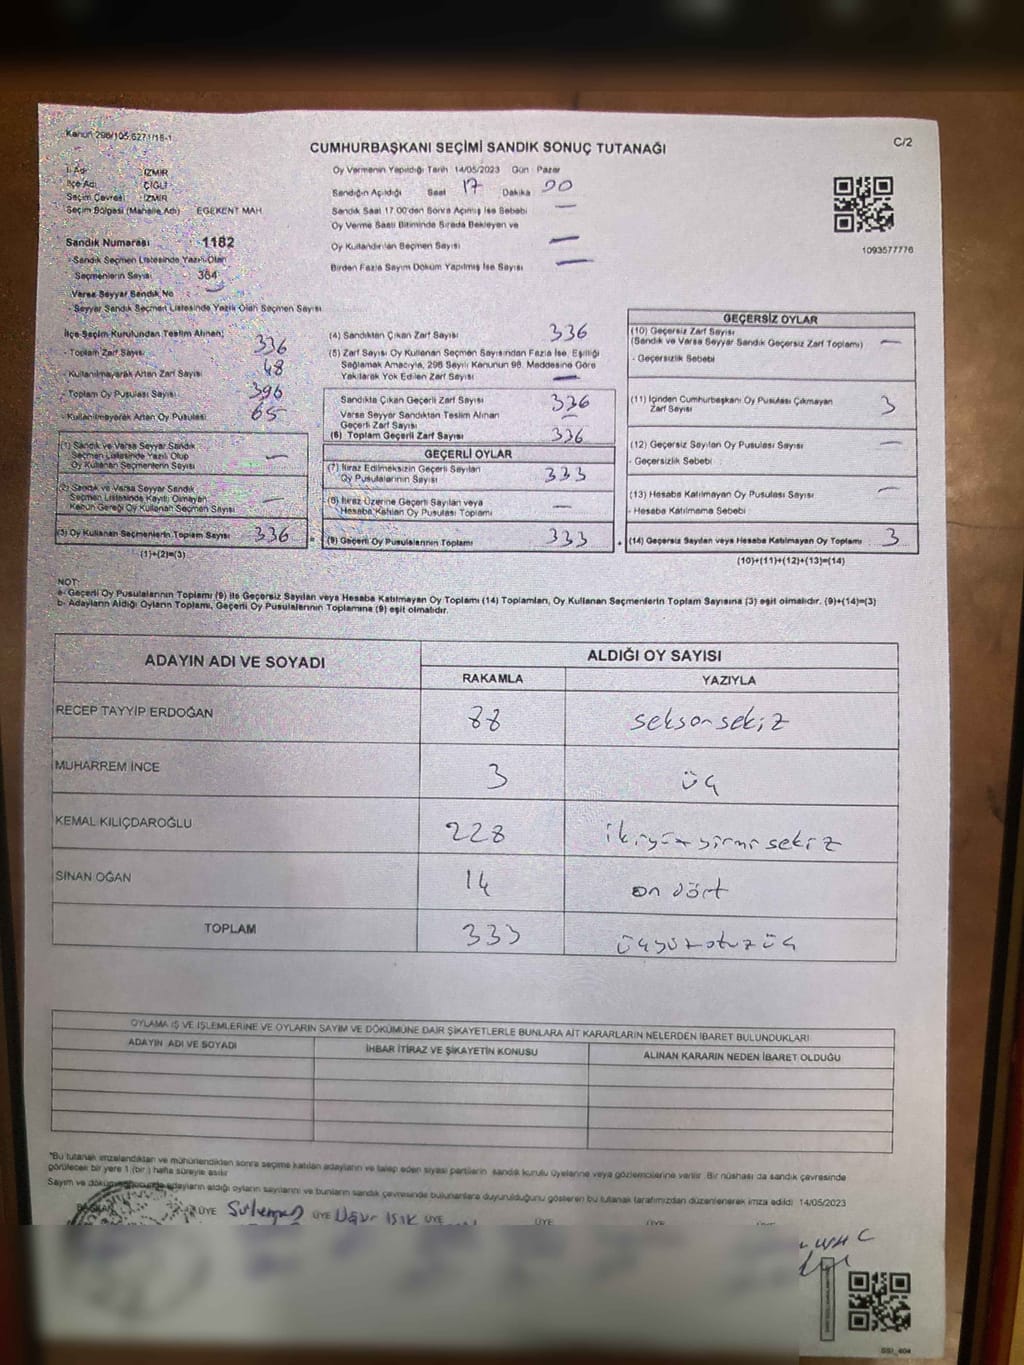 Kanun 298/105 6271/18-1
C/2
CUMHURBAŞKANI SEÇİMİ SANDIK SONUÇ TUTANAĞI
İl Adı : İZMİR
İlçe Adı : ÇİĞLİ
Seçim Çevresi : İZMİR
Seçim Bölgesi (Mahalle Adı) EGEKENT MAH
Oy Vermenin Yapıldığı Tarih 14/05/2023 Gün Pazar
Sandığın Açıldığı Saat 17 Dakika 00
Sandık Saat 17.00'den Sonra Açılmış İse Sebebi —
Oy Verme Saati Bitiminde Sırada Bekleyen ve
Oy Kullandırılan Seçmen Sayısı —
Birden Fazla Sayım Döküm Yapılmış İse Sayısı —
1093577776
Sandık Numarası : 1182
- Sandık Seçmen Listesinde Yazılı Olan
Seçmenlerin Sayısı 384
Varsa Seyyar Sandık No —
- Seyyar Sandık Seçmen Listesinde Yazılı Olan Seçmen Sayısı
İlçe Seçim Kurulundan Teslim Alınan;
- Toplam Zarf Sayısı 336
- Kullanılmayarak Artan Zarf Sayısı 48
- Toplam Oy Pusulası Sayısı 396
- Kullanılmayarak Artan Oy Pusulası 65
(1) Sandık ve Varsa Seyyar Sandık
Seçmen Listesinde Yazılı Olup
Oy Kullanan Seçmenlerin Sayısı —
(2) Sandık ve Varsa Seyyar Sandık
Seçmen Listesinde Kayıtlı Olmayan
Kanun Gereği Oy Kullanan Seçmen Sayısı —
(3) Oy Kullanan Seçmenlerin Toplam Sayısı 336
(1)+(2)=(3)
(4) Sandıktan Çıkan Zarf Sayısı 336
(5) Zarf Sayısı Oy Kullanan Seçmen Sayısından Fazla İse, Eşitliği
Sağlamak Amacıyla, 298 Sayılı Kanunun 98. Maddesine Göre
Yakılarak Yok Edilen Zarf Sayısı —
Sandıkta Çıkan Geçerli Zarf Sayısı 336
Varsa Seyyar Sandıktan Teslim Alınan
Geçerli Zarf Sayısı —
(6) Toplam Geçerli Zarf Sayısı 336
GEÇERLİ OYLAR
(7) İtiraz Edilmeksizin Geçerli Sayılan
Oy Pusulalarının Sayısı 333
(8) İtiraz Üzerine Geçerli Sayılan veya
Hesaba Katılan Oy Pusulası Toplamı —
(9) Geçerli Oy Pusulalarının Toplamı 333
GEÇERSİZ OYLAR
(10) Geçersiz Zarf Sayısı
(Sandık ve Varsa Seyyar Sandık Geçersiz Zarf Toplamı) —
- Geçersizlik Sebebi
(11) İçinden Cumhurbaşkanı Oy Pusulası Çıkmayan
Zarf Sayısı 3
(12) Geçersiz Sayılan Oy Pusulası Sayısı —
- Geçersizlik Sebebi
(13) Hesaba Katılmayan Oy Pusulası Sayısı —
- Hesaba Katılmama Sebebi
(14) Geçersiz Sayılan veya Hesaba Katılmayan Oy Toplamı 3
(10)+(11)+(12)+(13)=(14)
NOT:
a- Geçerli Oy Pusulalarının Toplamı (9) ile Geçersiz Sayılan veya Hesaba Katılmayan Oy Toplamı (14) Toplamları, Oy Kullanan Seçmenlerin Toplam Sayısına (3) eşit olmalıdır. (9)+(14)=(3)
b- Adayların Aldığı Oyların Toplamı, Geçerli Oy Pusulalarının Toplamına (9) eşit olmalıdır.
ADAYIN ADI VE SOYADI ALDIĞI OY SAYISI
RAKAMLA YAZIYLA
RECEP TAYYİP ERDOĞAN 88 seksensekiz
MUHARREM İNCE 3 üç
KEMAL KILIÇDAROĞLU 228 ikiyüzyirmisekiz
SİNAN OĞAN 14 on dört
TOPLAM 333 üçyüzotuzüç
OYLAMA İŞ VE İŞLEMLERİNE VE OYLARIN SAYIM VE DÖKÜMÜNE DAİR ŞİKAYETLERLE BUNLARA AİT KARARLARIN NELERDEN İBARET BULUNDUKLARI
ADAYIN ADI VE SOYADI İHBAR İTİRAZ VE ŞİKAYETİN KONUSU ALINAN KARARIN NEDEN İBARET OLDUĞU
*Bu tutanak imzalandıktan ve mühürlendikten sonra seçime katılan adayların ve talep eden siyasi partilerin sandık kurulu üyelerine veya gözlemcilerine verilir. Bir nüshası da sandık çevresinde
görülecek bir yere 1 (bir) hafta süreyle asılır
Sayım ve döküm sonucunda adayların aldığı oyların sayılarını ve bunların sandık çevresinde bulunanlara duyurulduğunu gösteren bu tutanak tarafımızdan düzenlenerek imza edildi. 14/05/2023
BAŞKAN ÜYE Süleyman ÜYE Uğur Işık ÜYE ÜYE ÜYE ÜYE